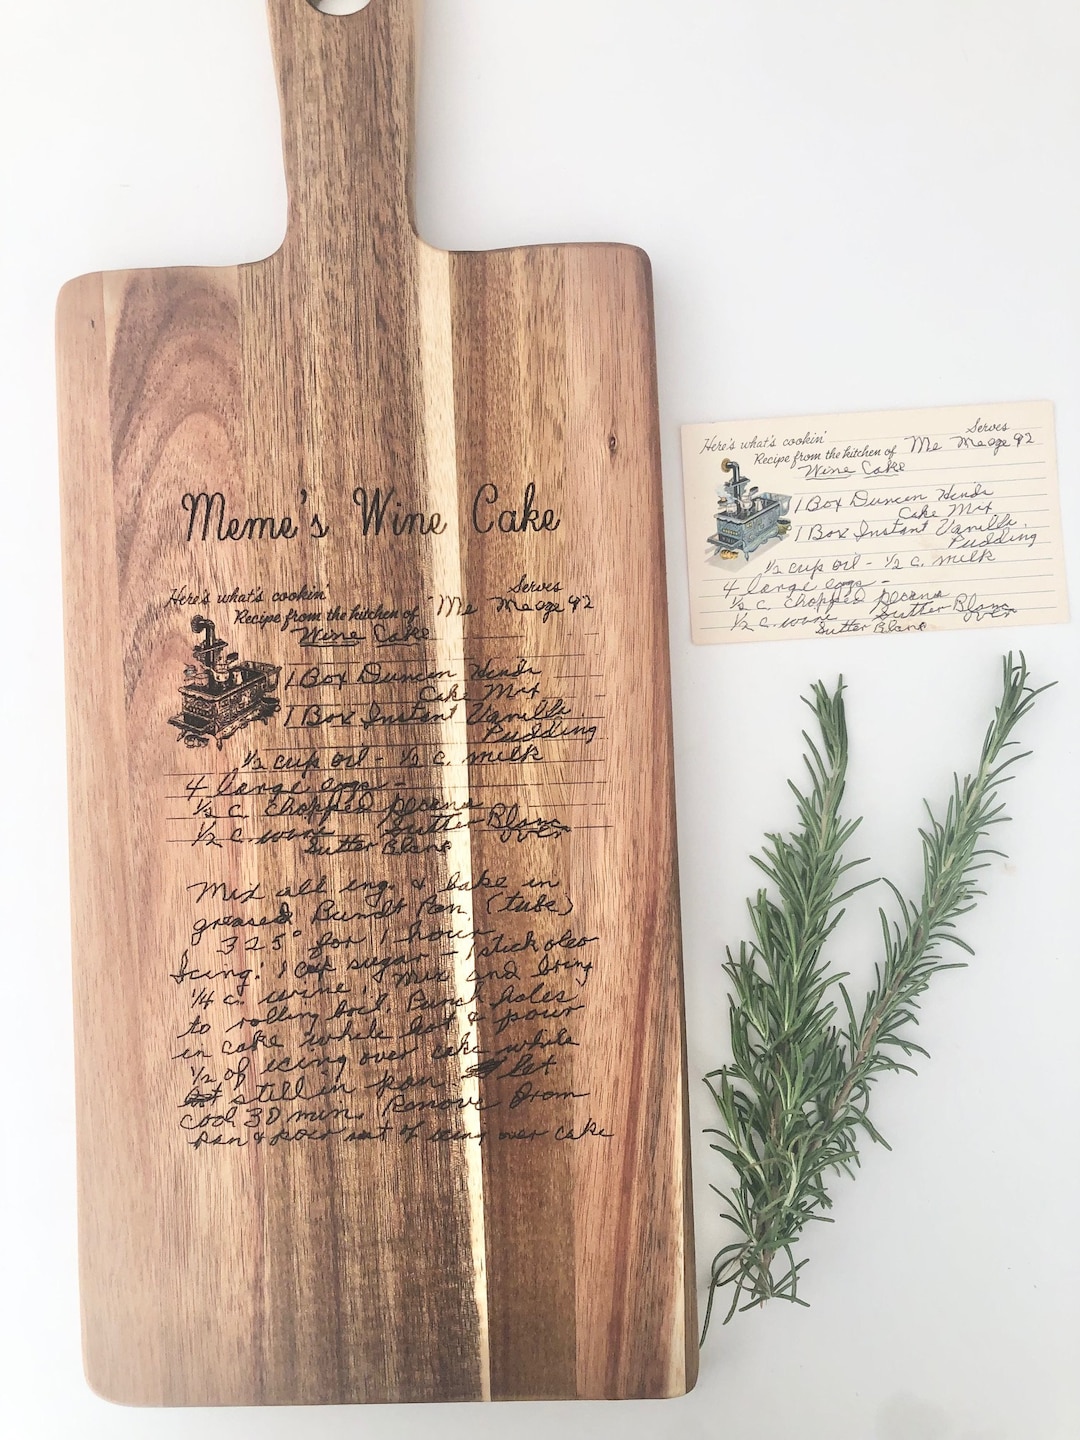 Meme's Wine Cake
Here's what's cookin' Serves
Recipe from the kitchen of Me Madge 92
Wine Cake
1 Box Duncan Hinds
Cake Mix
1 Box Instant Vanilla
Pudding
1/2 cup oil - 1/2 c. milk
4 large eggs -
1/2 c. chopped pecans
1/2 c. wine Sutter Blanc
over
Sutter Blanc
Mix all ing. & bake in
greased Bundt Pan (tube)
325° for 1 hour
Icing: 1 cup sugar - 1 stick oleo
1/4 c. wine, Mix and bring
to rolling boil. Punch holes
in cake while hot & pour
1/2 of icing over cake while
still in pan Let
cool 30 min. Remove from
pan & pour rest of icing over cake
Here's what's cookin' Serves
Recipe from the kitchen of Me Madge 92
Wine Cake
1 Box Duncan Hinds
Cake Mix
1 Box Instant Vanilla
Pudding
1/2 cup oil - 1/2 c. milk
4 large eggs -
1/2 c. chopped pecans
1/2 c. wine Sutter Blanc
over
Sutter Blanc